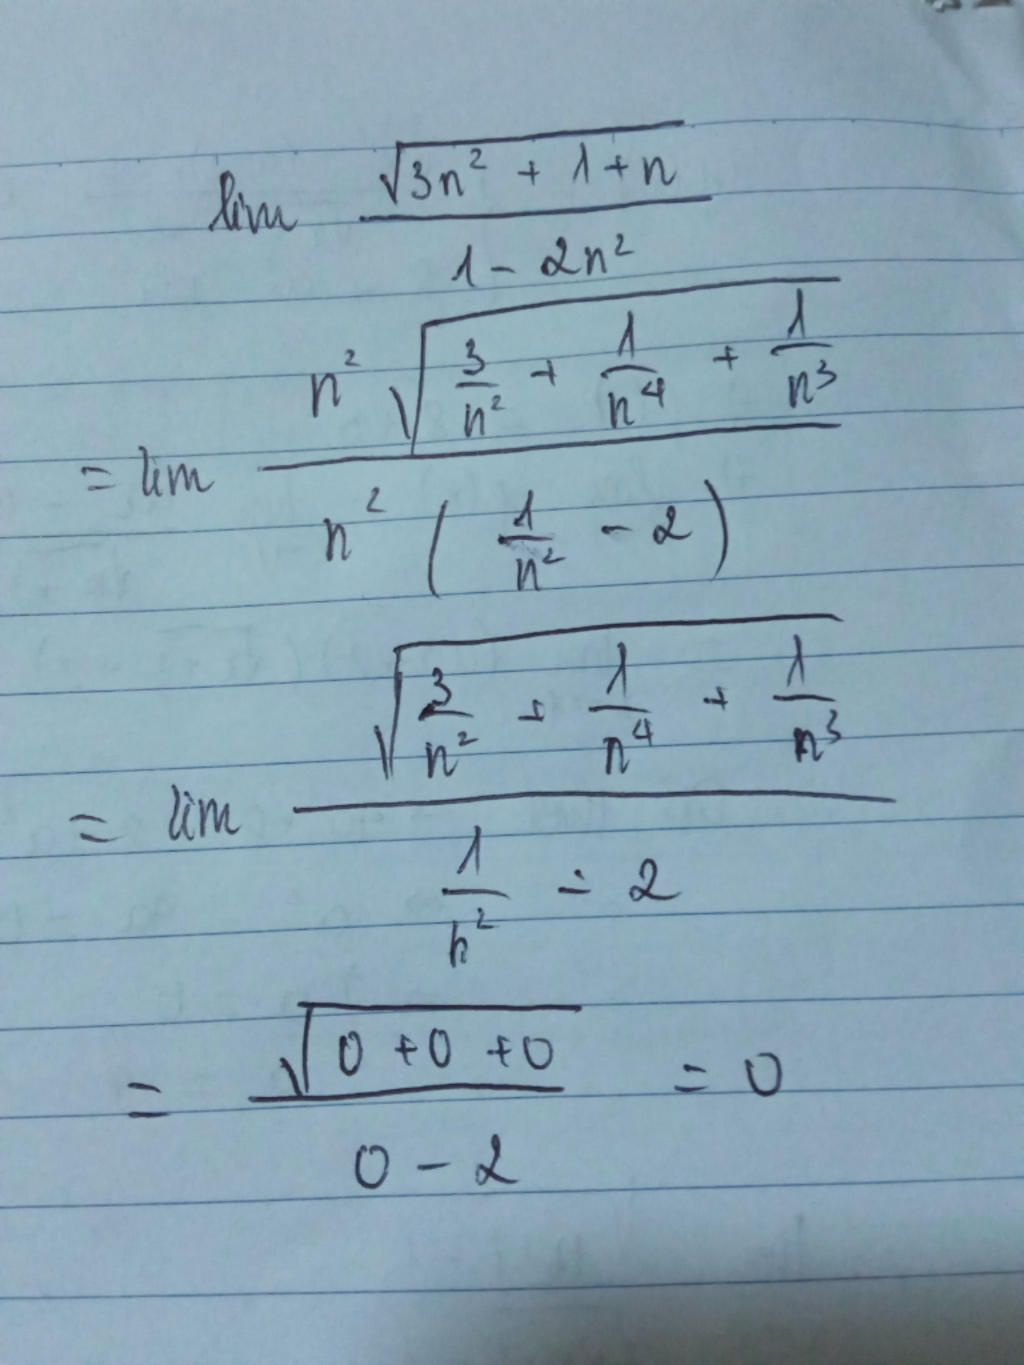 lim \frac{\sqrt{3n^2 + 1 + n}}{1 - 2n^2}
= lim \frac{n^2 \sqrt{\frac{3}{n^2} + \frac{1}{n^4} + \frac{1}{n^3}}}{n^2 \left( \frac{1}{n^2} - 2 \right)}
= lim \frac{\sqrt{\frac{3}{n^2} + \frac{1}{n^4} + \frac{1}{n^3}}}{\frac{1}{n^2} - 2}
= \frac{\sqrt{0 + 0 + 0}}{0 - 2} = 0